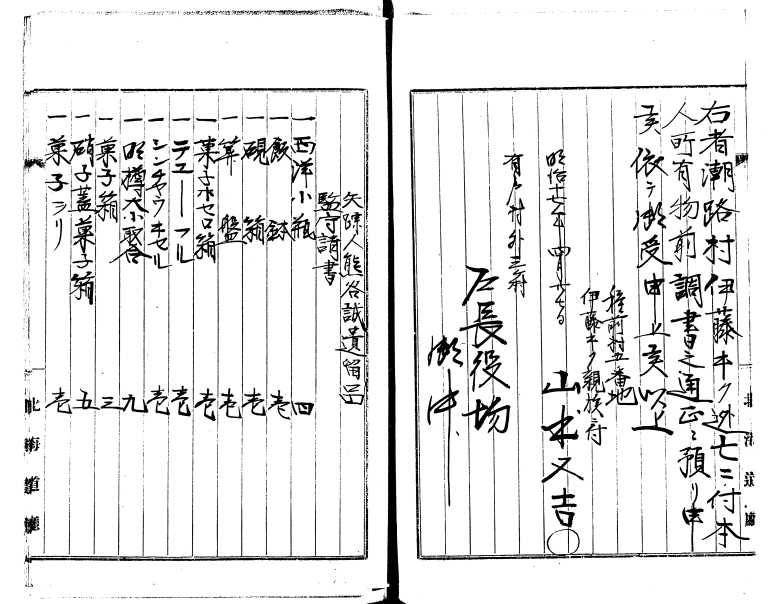 右者潮路村伊藤キク逃亡ニ付本
人所有物前調書之通正ニ預リ申
候依テ御受申上候以上
種前村五番地
伊藤キク親族ニ付
山本又吉
明治十七年四月
有戸村外三ヶ村
戸長役場
御中
失踪人熊谷誠遺留品
監守請書
一西洋小瓶 四
一飯鉢 壱
一硯箱 壱
一算盤 壱
一菓子水セロ箱 壱
一テユーフル 壱
一シンチヤウキセル 壱
一明樽大小取合 九
一菓子箱 三
一硝子蓋菓子箱 五
一菓子シリ 壱
北海道廳